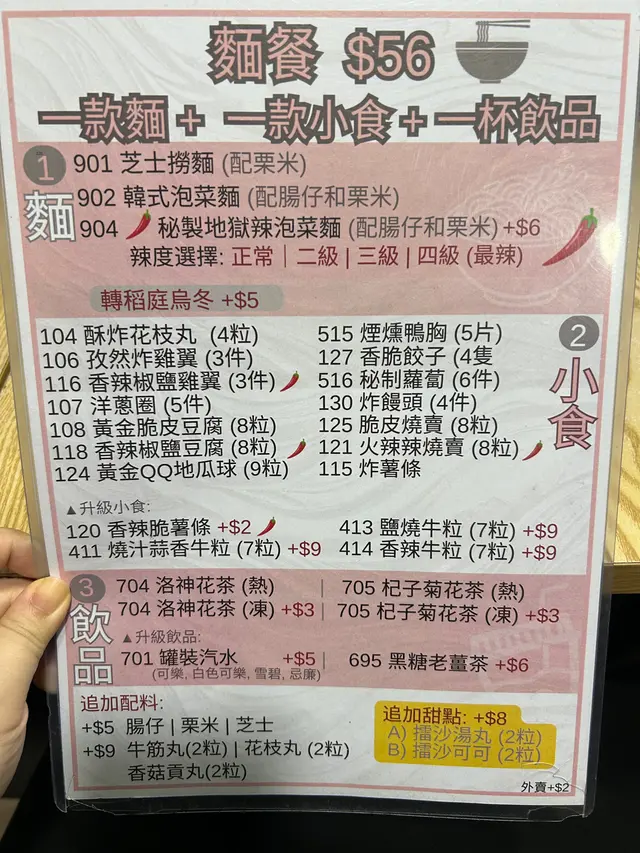 麵餐 $56
一款麵 + 一款小食 + 一杯飲品
1 麵
901 芝士撈麵 (配栗米)
902 韓式泡菜麵 (配腸仔和栗米)
904 秘製地獄辣泡菜麵 (配腸仔和栗米) +$6
辣度選擇: 正常 | 二級 | 三級 | 四級 (最辣)
轉稻庭烏冬 +$5
2 小食
104 酥炸花枝丸 (4粒)
106 孜然炸雞翼 (3件)
116 香辣椒鹽雞翼 (3件)
107 洋蔥圈 (5件)
108 黃金脆皮豆腐 (8粒)
118 香辣椒鹽豆腐 (8粒)
124 黃金QQ地瓜球 (9粒)
515 煙燻鴨胸 (5片)
127 香脆餃子 (4隻
516 秘制蘿蔔 (6件)
130 炸饅頭 (4件)
125 脆皮燒賣 (8粒)
121 火辣辣燒賣 (8粒)
115 炸薯條
▲升級小食:
120 香辣脆薯條 +$2
413 鹽燒牛粒 (7粒) +$9
411 燒汁蒜香牛粒 (7粒) +$9
414 香辣牛粒 (7粒) +$9
3 飲品
704 洛神花茶 (熱) | 705 杞子菊花茶 (熱)
704 洛神花茶 (凍) +$3 | 705 杞子菊花茶 (凍) +$3
▲升級飲品:
701 罐裝汽水 +$5 | 695 黑糖老薑茶 +$6
(可樂, 白色可樂, 雪碧, 忌廉)
追加配料:
+$5 腸仔 | 栗米 | 芝士
+$9 牛筋丸(2粒) | 花枝丸 (2粒)
香菇貢丸(2粒)
追加甜點: +$8
A) 擂沙湯丸 (2粒)
B) 擂沙可可 (2粒)
外賣+$2